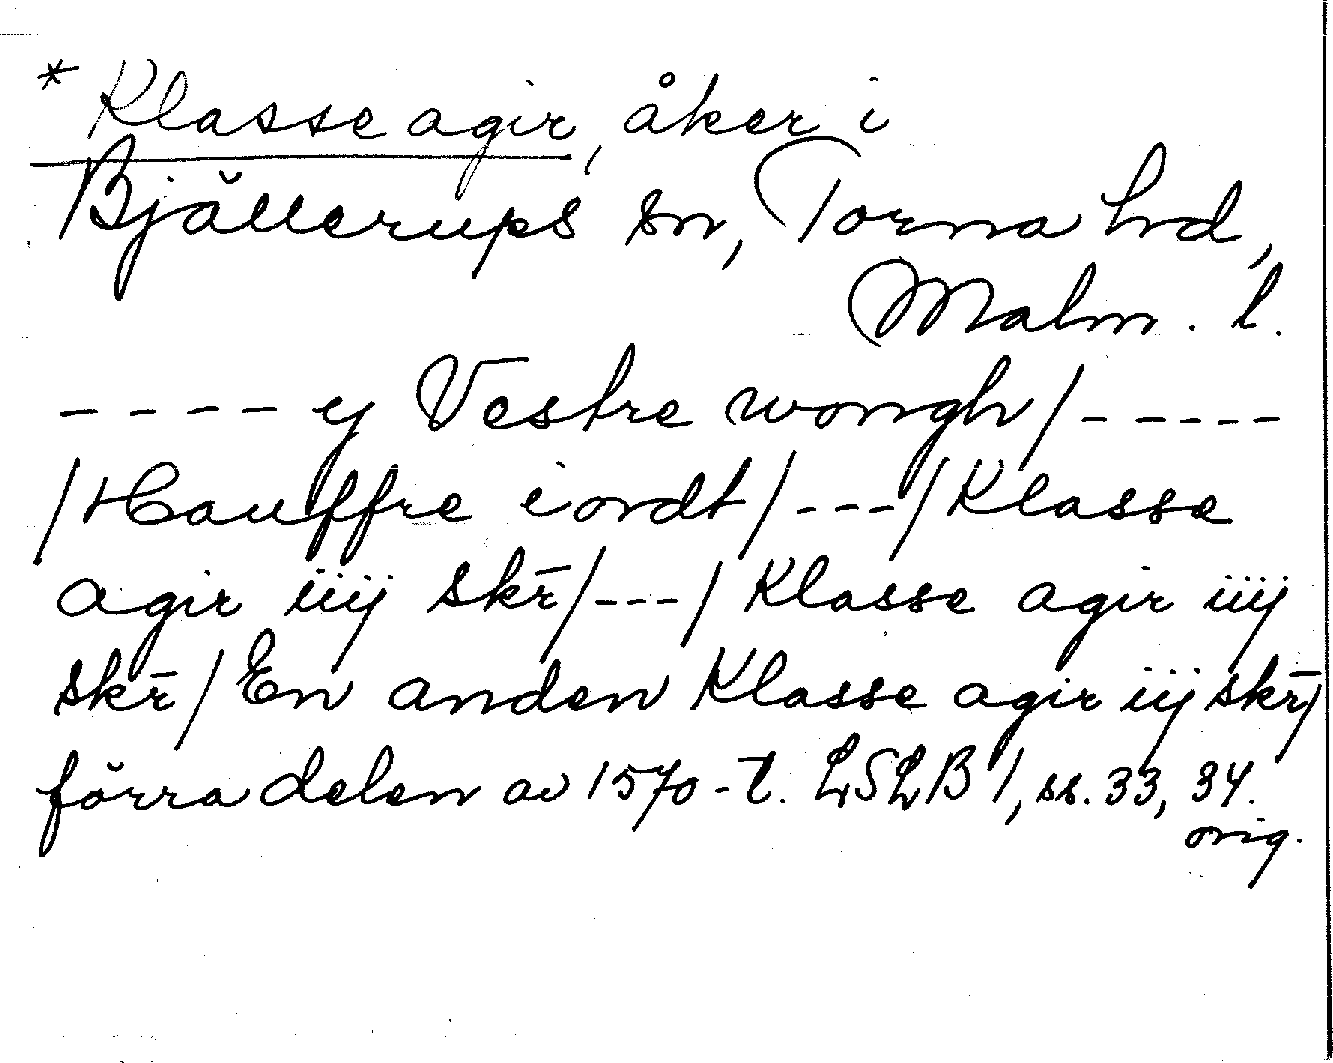 * Klasse agir, åker i
Bjällerups sn, Torna hd,
Malm. l.
---- y Vestre wongh/-----
/Hauffre iordt/---/Klasse
agir iiij skr̄/---/Klasse agir iiij
skr̄/En anden Klasse agir iij skr̄/
förra delen av 1570-t. LSLB 1, ss. 33, 34.
orig.